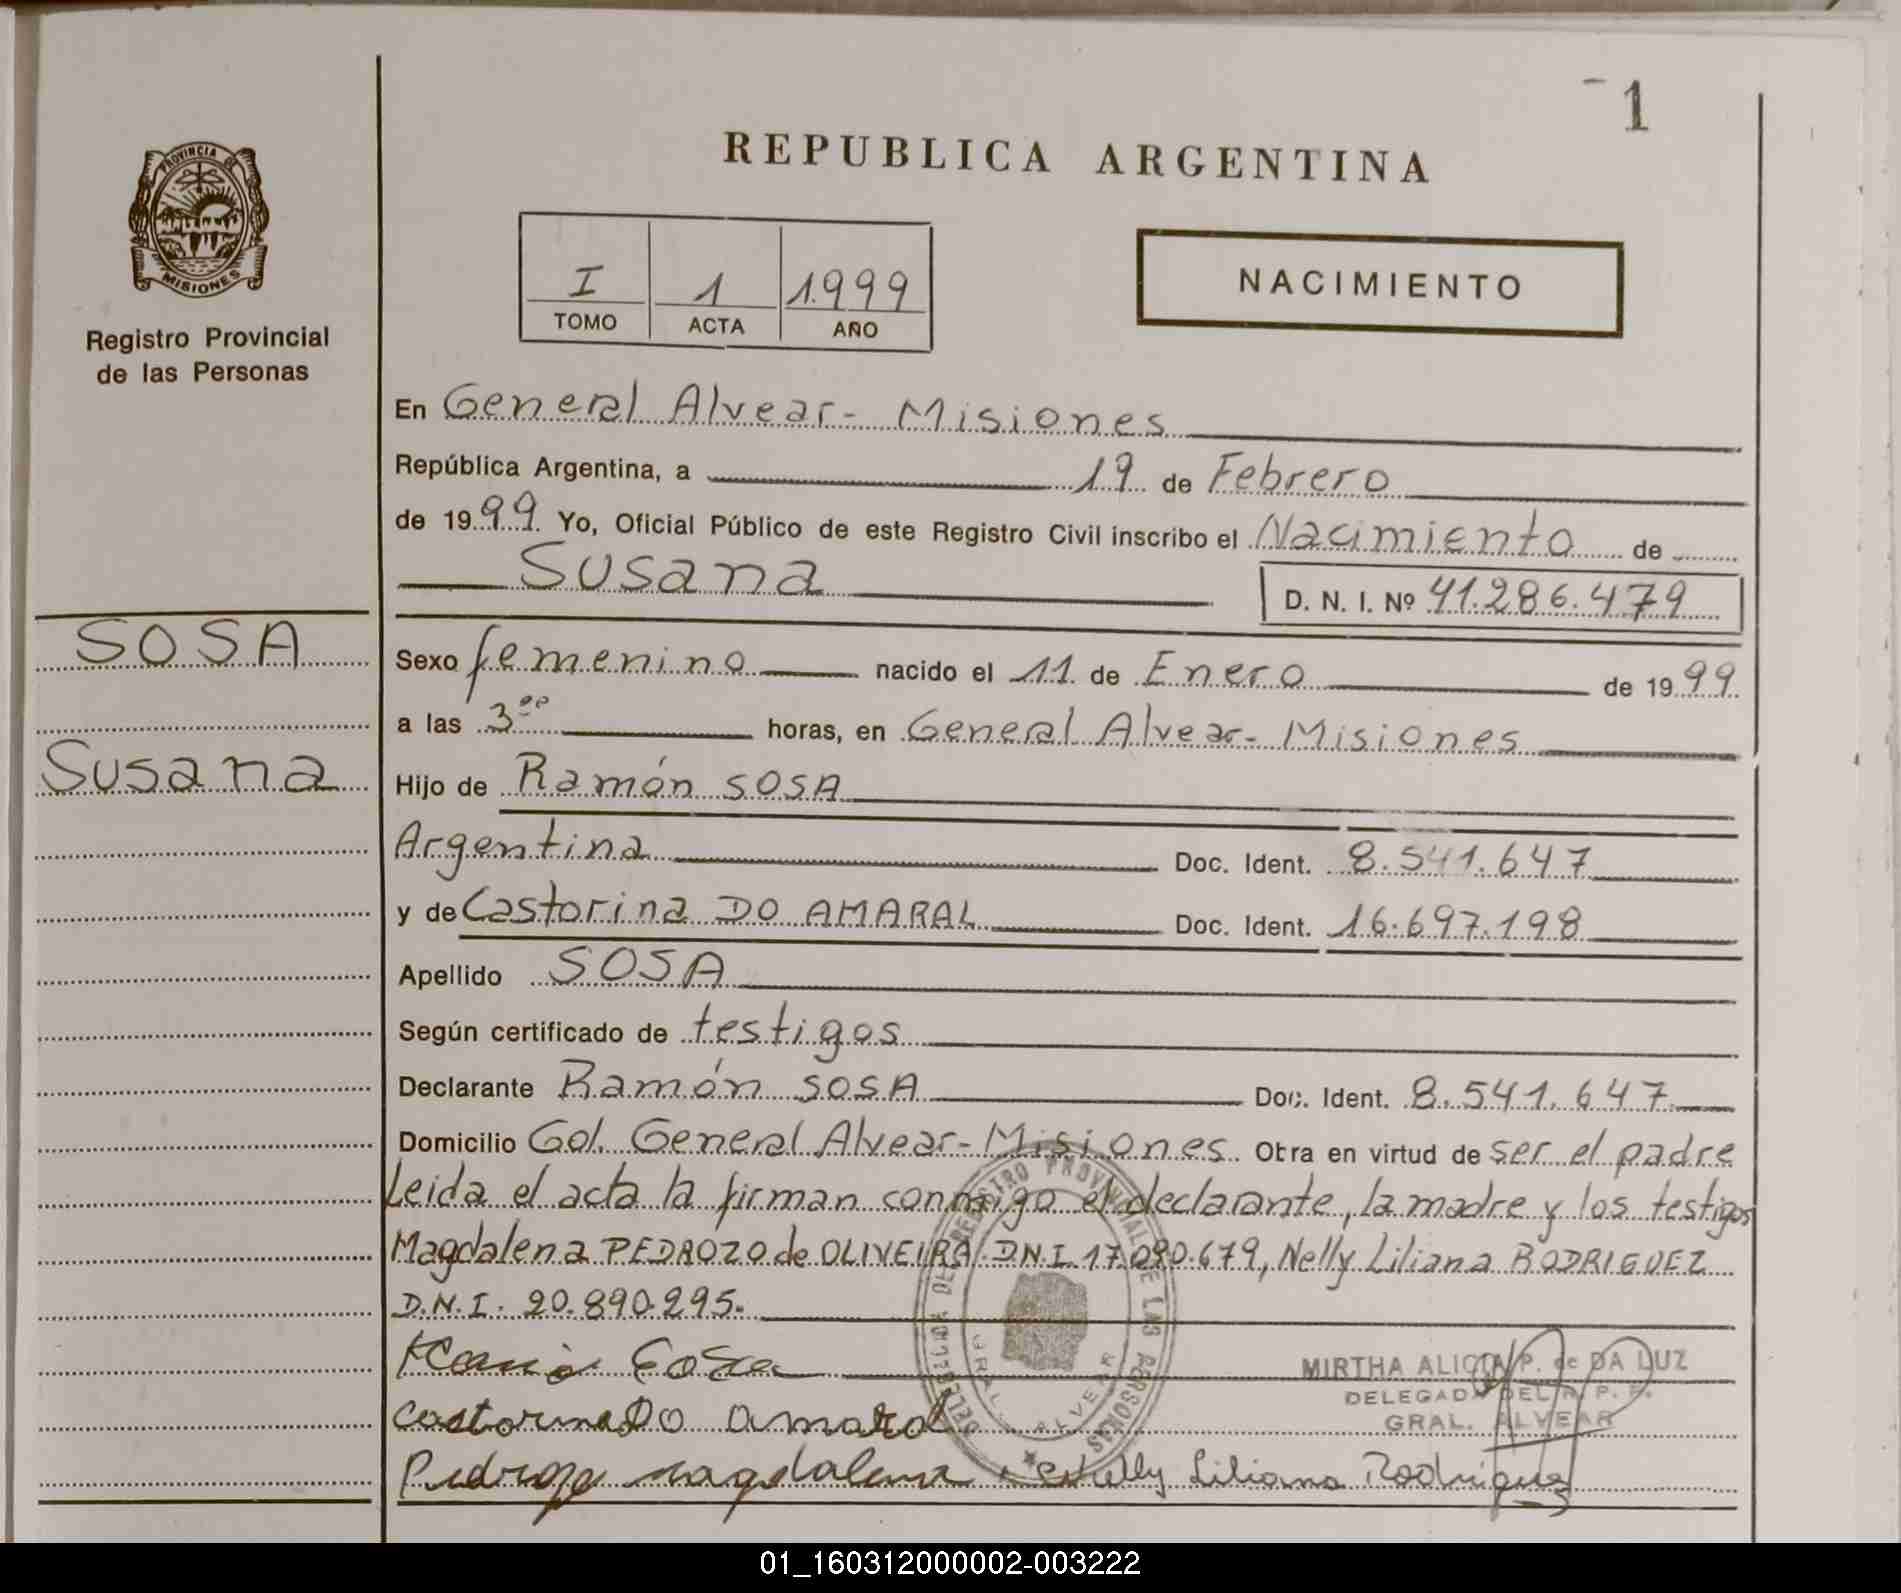 1
REPUBLICA ARGENTINA
PROVINCIA DE
MISIONES
Registro Provincial
de las Personas
I 1 1.999
TOMO ACTA AÑO
NACIMIENTO
En General Alvear - Misiones
República Argentina, a 19 de Febrero
de 1999 Yo, Oficial Público de este Registro Civil inscribo el Nacimiento de
Susana D. N. I. Nº 41.286.479
SOSA
Susana
Sexo femenino nacido el 11 de Enero de 1999
a las 3 horas, en General Alvear - Misiones
Hijo de Ramón SOSA
Argentina Doc. Ident. 8.541.647
y de Castorina DO AMARAL Doc. Ident. 16.697.198
Apellido SOSA
Según certificado de testigos
Declarante Ramón SOSA Doc. Ident. 8.541.647
Domicilio Gol. General Alvear - Misiones Obra en virtud de ser el padre
Leida el acta la firman conmigo el declarante, la madre y los testigos
Magdalena PEDROZO de OLIVEIRA D.N.I. 17.090.679, Nelly Liliana RODRIGUEZ
D.N.I. 20.890.295.
REGISTRO PROVINCIAL DE LAS PERSONAS
GRAL. ALVEAR
MIRTHA ALICIA P. de DA LUZ
DELEGADA DEL R. P. P.
GRAL. ALVEAR
Castorina DO amaral
Pedrozo magdalena Nelly Liliana Rodriguez
01_160312000002-003222